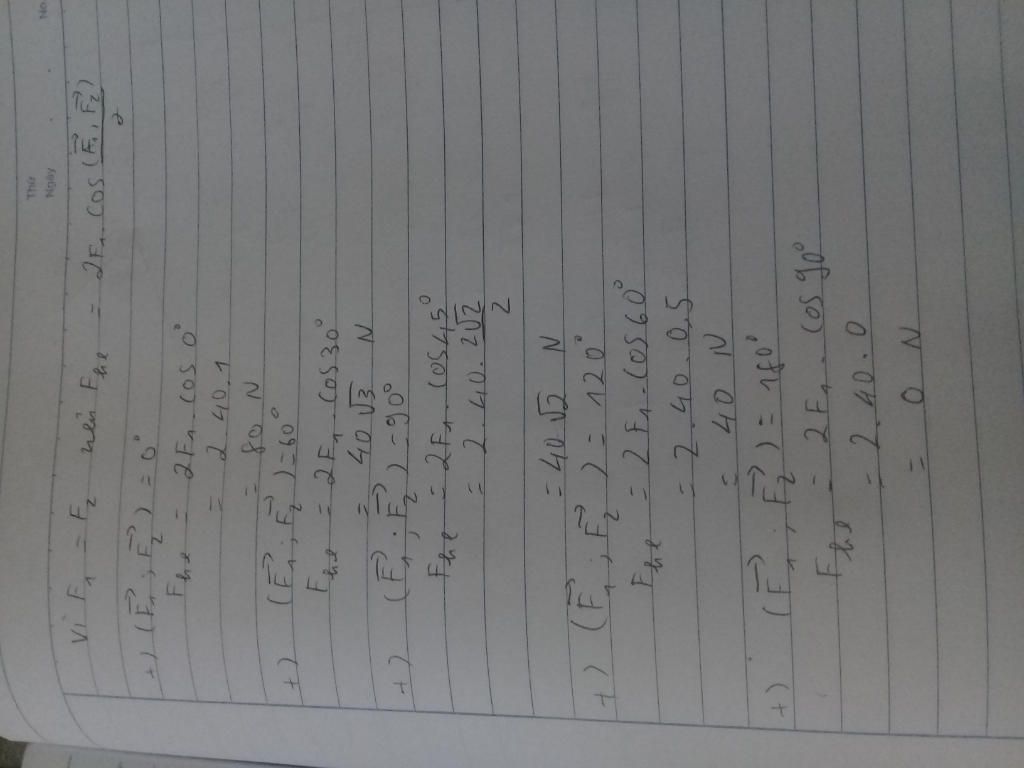 Thứ
Ngày No.
Vì F₁ = F₂ nên F_hl = 2F₁. cos (F₁⃗, F₂⃗)/2
+) (F₁⃗ ; F₂⃗) = 0°
F_hl = 2F₁. cos 0°
= 2 40.1
= 80 N
+) (F₁⃗ ; F₂⃗) = 60°
F_hl = 2F₁. cos 30°
= 40√3 N
+) (F₁⃗ ; F₂⃗) = 90°
F_hl = 2F₁. cos 45°
= 2.40. 2√2/2
= 40√2 N
+) (F₁⃗ ; F₂⃗) = 120°
F_hl = 2F₁. cos 60°
= 2.40.0,5
= 40 N
+) (F₁⃗ ; F₂⃗) = 180°
F_hl = 2F₁. cos 90°
= 2.40.0
= 0 N